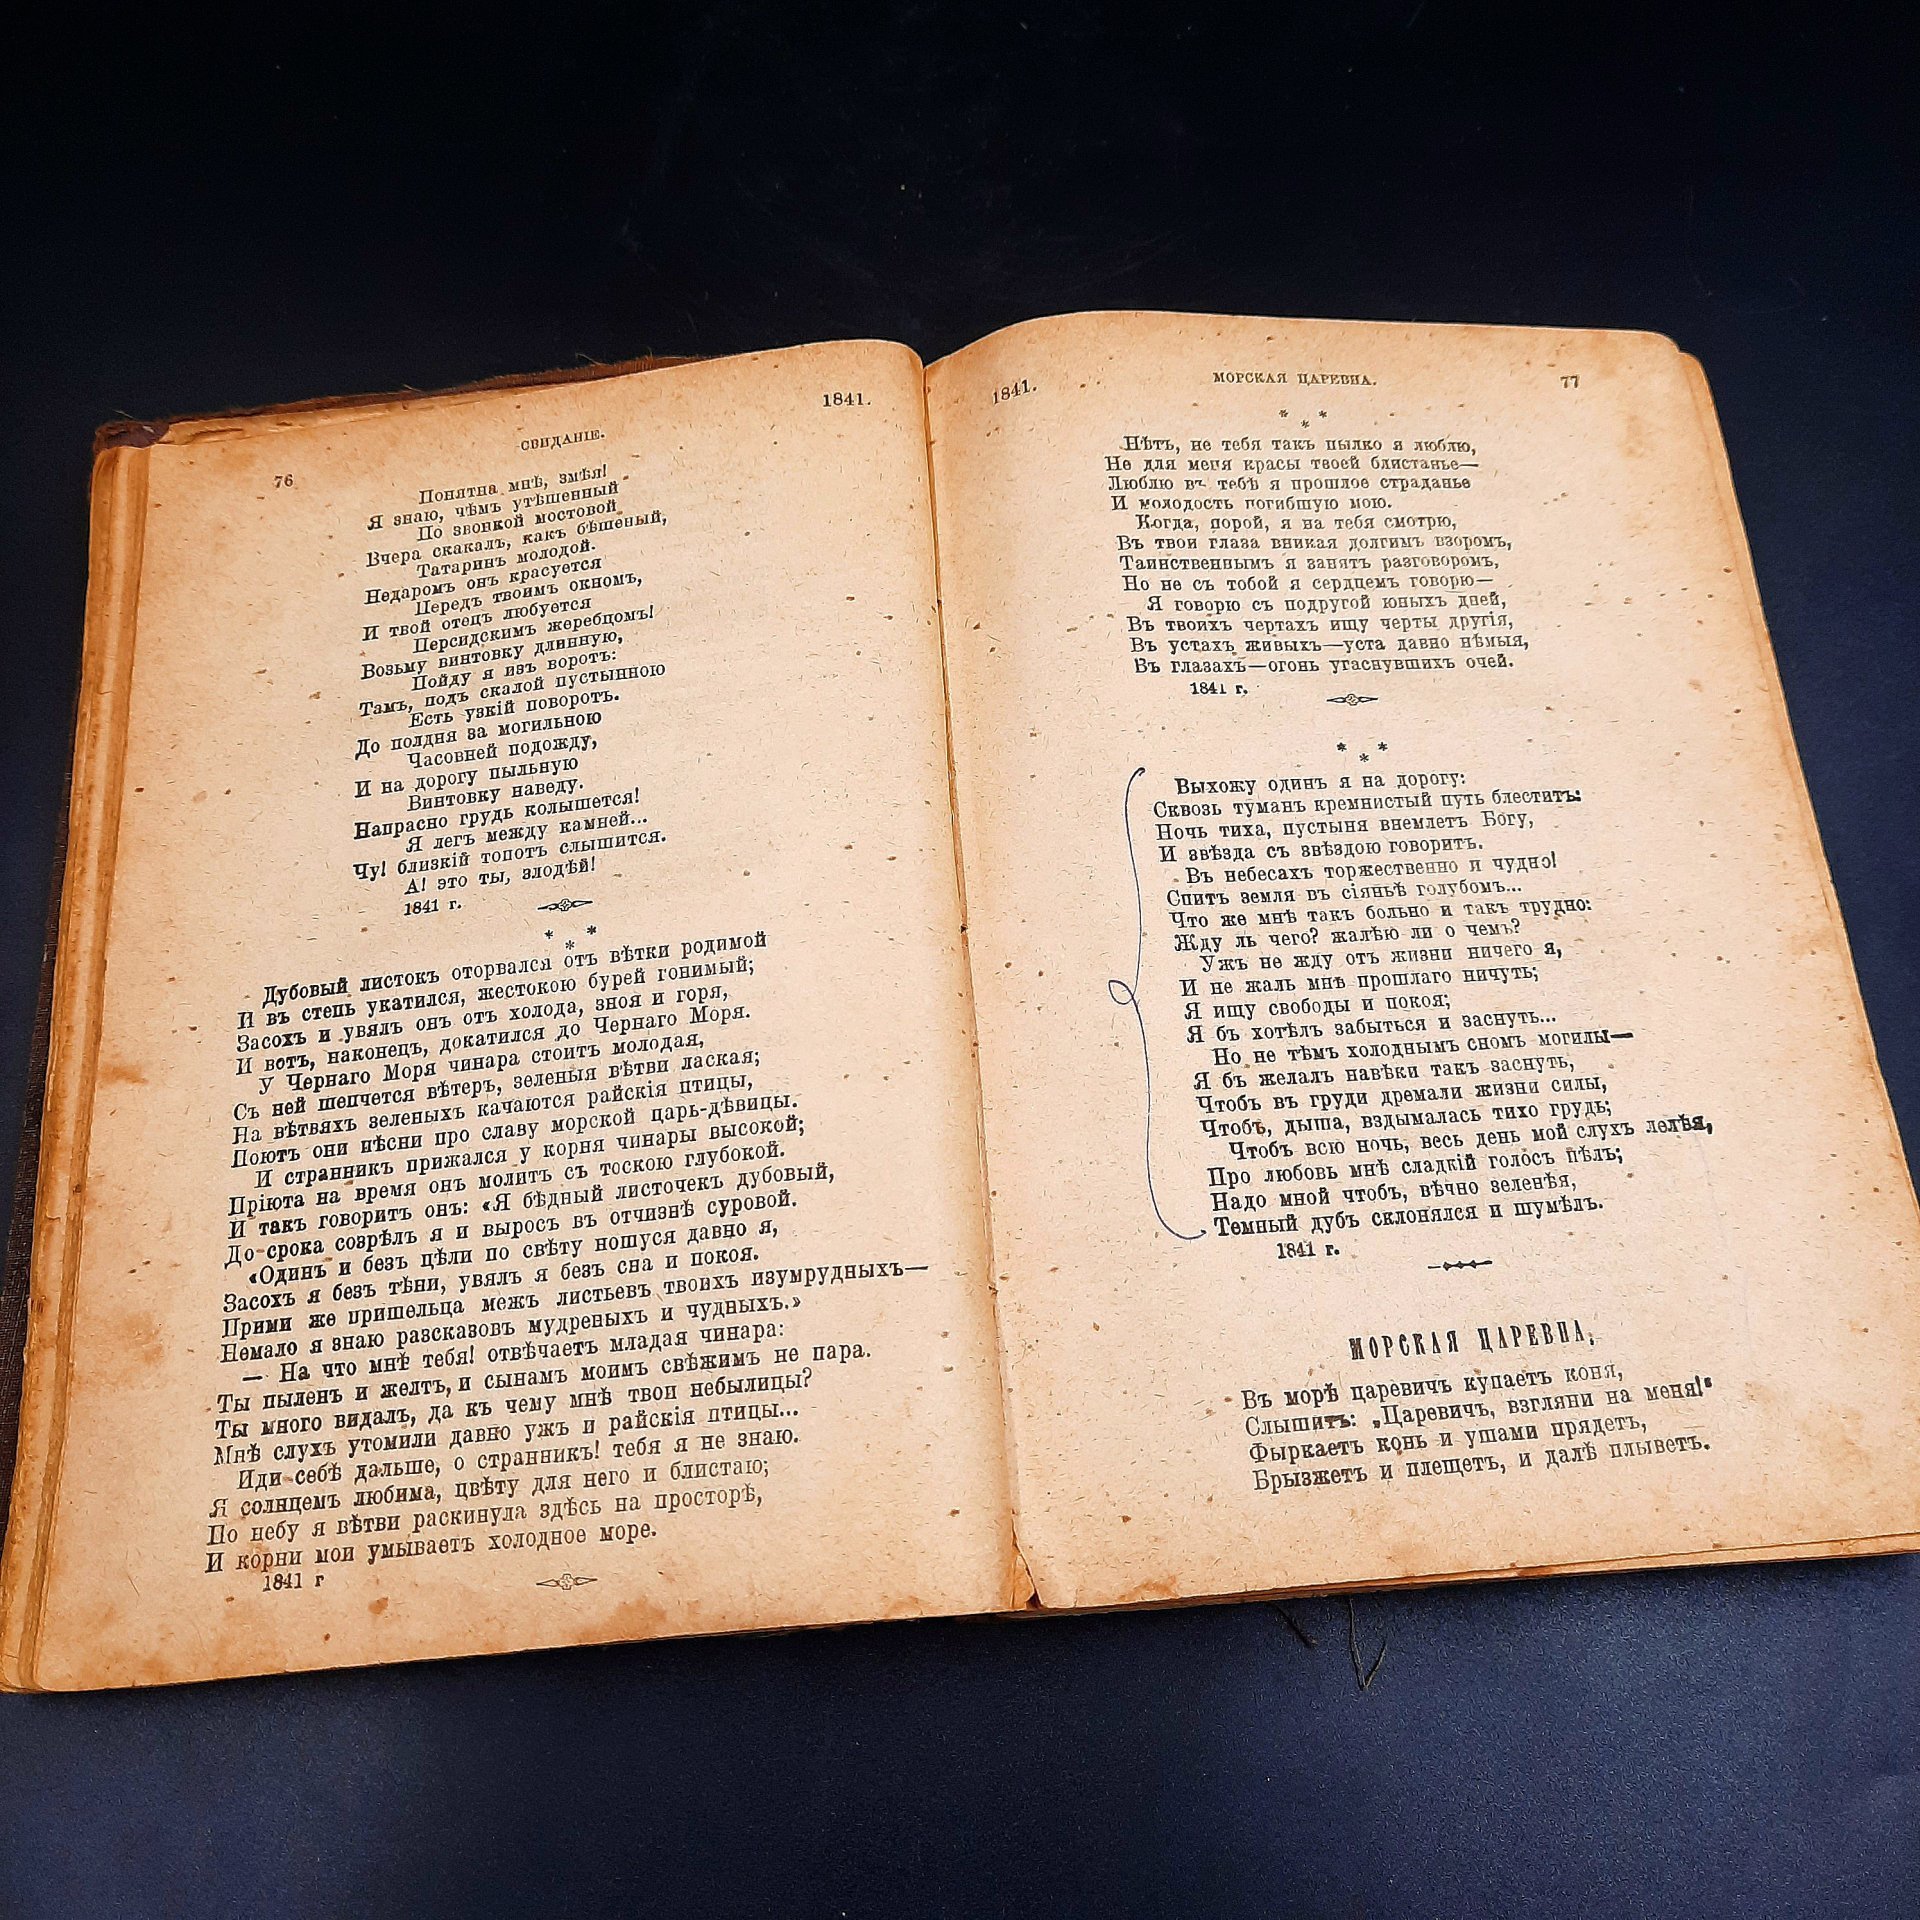 76
СВИДАНІЕ.
1841.
Понятна мнѣ, змѣя!
Я знаю, чѣмъ утѣшенный
По звонкой мостовой
Вчера скакалъ, какъ бѣшеный,
Татаринъ молодой.
Недаромъ онъ красуется
Передъ твоимъ окномъ,
И твой отецъ любуется
Персидскимъ жеребцомъ!
Возьму винтовку длинную,
Пойду я изъ воротъ:
Тамъ, подъ скалой пустынною
Есть узкій поворотъ.
До полдня за могильною
Часовней подожду,
И на дорогу пыльную
Винтовку наведу.
Напрасно грудь колышется!
Я легъ между камней...
Чу! близкій топотъ слышится.
А! это ты, злодѣй!
1841 г.
* * *
Дубовый листокъ оторвался отъ вѣтки родимой
И въ степь укатился, жестокою бурей гонимый;
Засохъ и увялъ онъ отъ холода, зноя и горя,
И вотъ, наконецъ, докатился до Чернаго Моря.
У Чернаго Моря чинара стоитъ молодая,
Съ ней шепчется вѣтеръ, зеленыя вѣтви лаская;
На вѣтвяхъ зеленыхъ качаются райскія птицы,
Поютъ они пѣсни про славу морской царь-дѣвицы.
И странникъ прижался у корня чинары высокой;
Пріюта на время онъ молитъ съ тоскою глубокой.
И такъ говоритъ онъ: «Я бѣдный листочекъ дубовый,
До срока созрѣлъ я и выросъ въ отчизнѣ суровой.
«Одинъ и безъ цѣли по свѣту ношуся давно я,
Засохъ я безъ тѣни, увялъ я безъ сна и покоя.
Прими же пришельца межъ листьевъ твоихъ изумрудныхъ—
Немало я знаю разсказовъ мудреныхъ и чудныхъ.»
— На что мнѣ тебя! отвѣчаетъ младая чинара:
Ты пыленъ и желтъ, и сынамъ моимъ свѣжимъ не пара.
Ты много видалъ, да къ чему мнѣ твои небылицы?
Мнѣ слухъ утомили давно ужъ и райскія птицы...
Иди себѣ дальше, о странникъ! тебя я не знаю.
Я солнцемъ любима, цвѣту для него и блистаю;
По небу я вѣтви раскинула здѣсь на просторѣ,
И корни мои умываетъ холодное море.
1841 г
1841.
МОРСКАЯ ЦАРЕВНА.
77
* * *
Нѣтъ, не тебя такъ пылко я люблю,
Не для меня красы твоей блистанье—
Люблю въ тебѣ я прошлое страданье
И молодость погибшую мою.
Когда, порой, я на тебя смотрю,
Въ твои глаза вникая долгимъ взоромъ,
Таинственнымъ я занятъ разговоромъ,
Но не съ тобой я сердцемъ говорю—
Я говорю съ подругой юныхъ дней,
Въ твоихъ чертахъ ищу черты другія,
Въ устахъ живыхъ—уста давно нѣмыя,
Въ глазахъ—огонь угаснувшихъ очей.
1841 г.
* * *
Выхожу одинъ я на дорогу:
Сквозь туманъ кремнистый путь блеститъ:
Ночь тиха, пустыня внемлетъ Богу,
И звѣзда съ звѣздою говоритъ.
Въ небесахъ торжественно и чудно!
Спитъ земля въ сіяньѣ голубомъ...
Что же мнѣ такъ больно и такъ трудно:
Жду ль чего? жалѣю ли о чемъ?
Ужъ не жду отъ жизни ничего я,
И не жаль мнѣ прошлаго ничуть;
Я ищу свободы и покоя;
Я бъ хотѣлъ забыться и заснуть...
Но не тѣмъ холоднымъ сномъ могилы—
Я бъ желалъ навѣки такъ заснуть,
Чтобъ въ груди дремали жизни силы,
Чтобъ, дыша, вздымалась тихо грудь;
Чтобъ всю ночь, весь день мой слухъ лелѣя,
Про любовь мнѣ сладкій голосъ пѣлъ;
Надо мной чтобъ, вѣчно зеленѣя,
Темный дубъ склонялся и шумѣлъ.
1841 г.
МОРСКАЯ ЦАРЕВНА.
Въ морѣ царевичъ купаетъ коня,
Слышитъ: „Царевичъ, взгляни на меня!“
Фыркаетъ конь и ушами прядетъ,
Брызжетъ и плещетъ, и далѣ плыветъ.